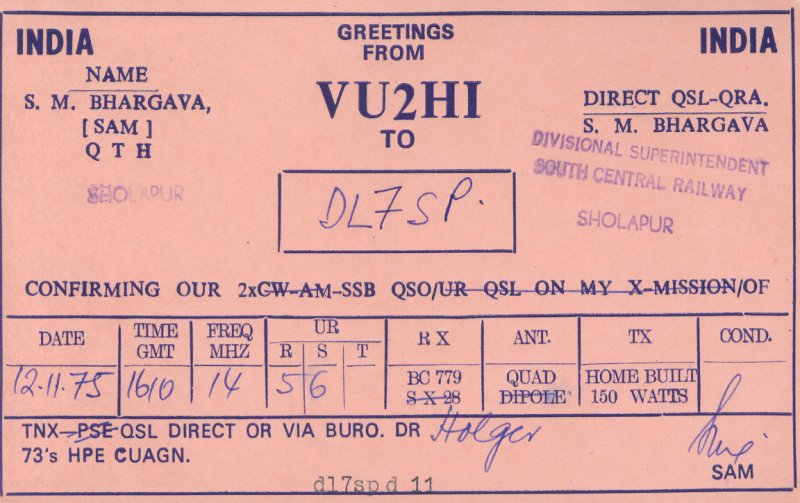 INDIA
GREETINGS
FROM
INDIA
NAME
S. M. BHARGAVA,
[ SAM ]
Q T H
SHOLAPUR
VU2HI
TO
DL7SP.
DIRECT QSL-QRA.
S. M. BHARGAVA
DIVISIONAL SUPERINTENDENT
SOUTH CENTRAL RAILWAY
SHOLAPUR
CONFIRMING OUR 2xCW-AM-SSB QSO/UR QSL ON MY X-MISSION/OF
DATE TIME GMT FREQ MHZ UR R S T R X ANT. TX COND.
12.11.75 1610 14 5 6 BC 779 S-X-28 QUAD DIPOLE HOME BUILT 150 WATTS
TNX-PSE-QSL DIRECT OR VIA BURO. DR Holger
73's HPE CUAGN.
SAM
dl7sp d 11